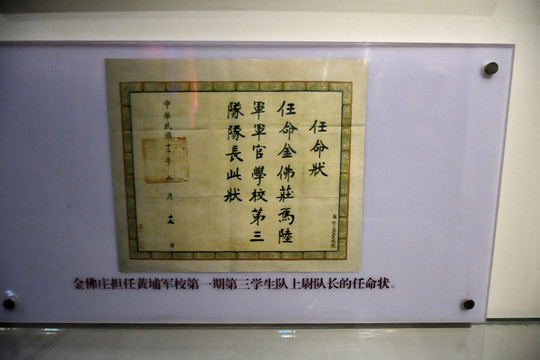 任命狀
任命金佛莊為陸
軍軍官學校第三
隊隊長此狀
中華民國十三年
月
日
金佛庄担任黄埔军校第一期第三学生队上尉队长的任命状。